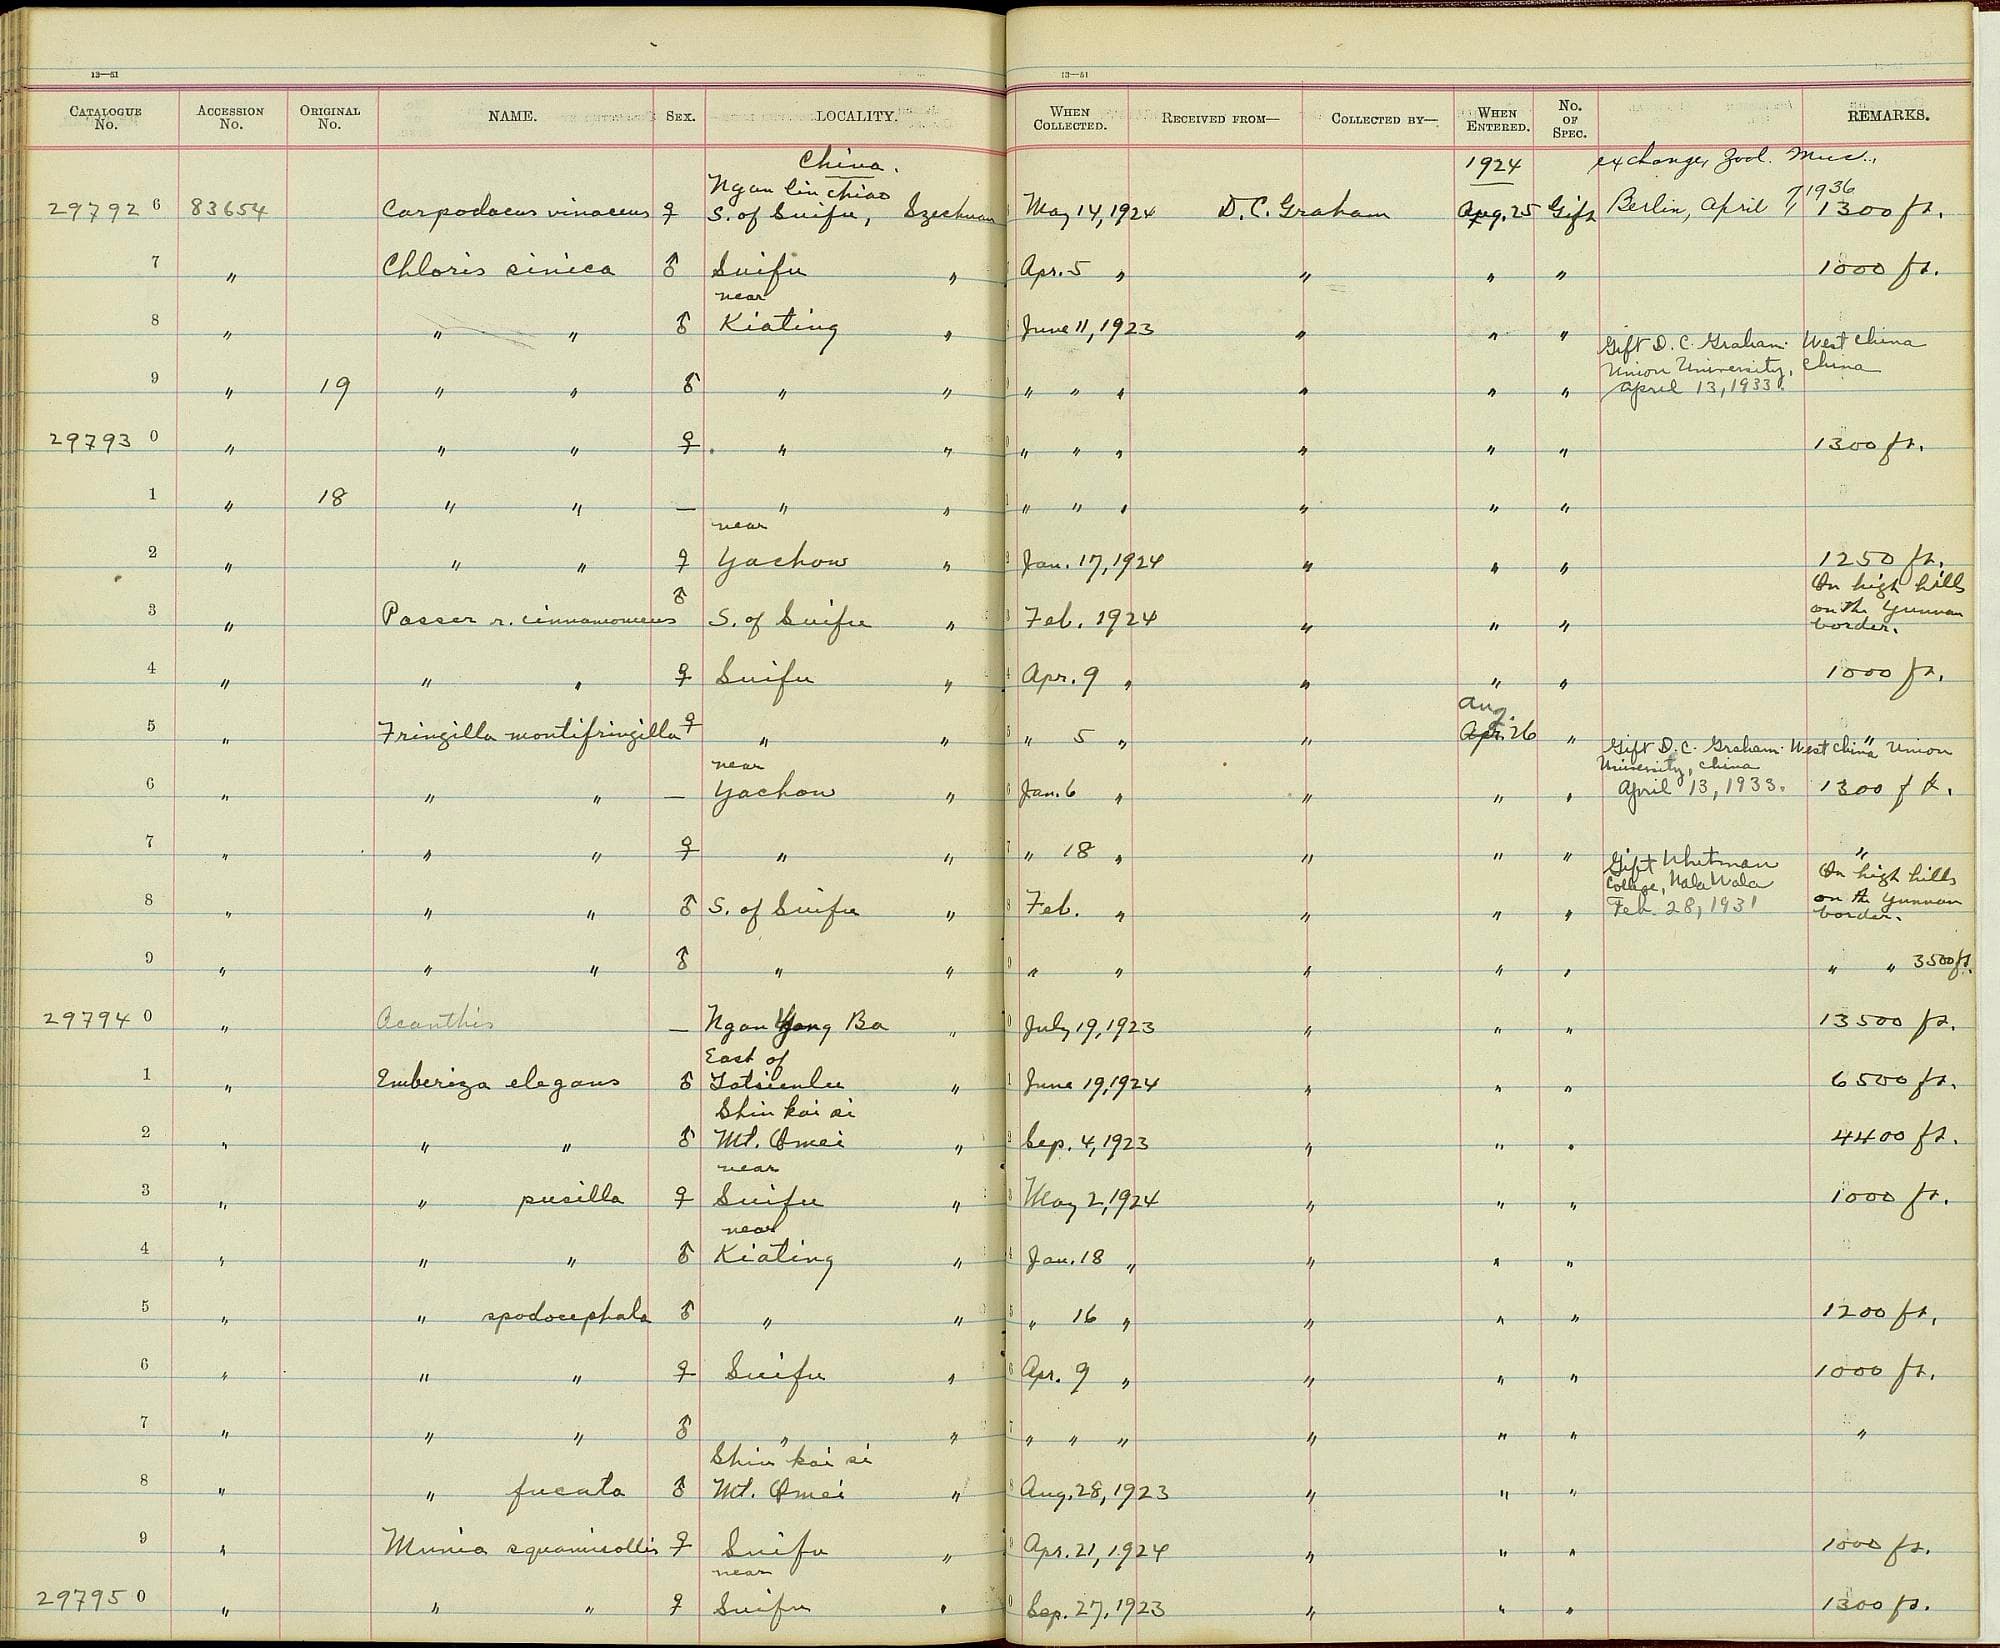 13—51 13—51
CATALOGUE No. ACCESSION No. ORIGINAL No. NAME. SEX. LOCALITY. WHEN COLLECTED. RECEIVED FROM— COLLECTED BY— WHEN ENTERED. No. OF SPEC. REMARKS.
China. 1924 exchange, Zool. Mus.,
Ngan lin chiao
29792 6 83654 Carpodacus vinaceus ♀ S. of Suifu, Szechuan May 14, 1924 D. C. Graham Aug. 25 Gift Berlin, April 7, 1936 1300 ft.
7 " Chloris sinica ♂ Suifu " Apr. 5 " " " " 1000 ft.
near
8 " " " ♂ Kiating " June 11, 1923 " " "
Gift D. C. Graham. West China
Union University, China
9 " 19 " " ♂ " " " " " " " " April 13, 1933.
29793 0 " " " ♀ " " " " " " " " 1300 ft.
1 " 18 " " — " " " " " " " "
near
2 " " " ♀ Yachow " Jan. 17, 1924 " " " 1250 ft.
3 " Passer r. cinnamomeus ♂ S. of Suifu " Feb. 1924 " " " On high hills
on the Yunnan
border.
4 " " " ♀ Suifu " Apr. 9 " " " " 1000 ft.
Aug.
5 " Fringilla montifringilla ♀ " " " 5 " " Apr. 26 " "
near Gift D. C. Graham. West China Union
University, China
6 " " " — Yachow " Jan. 6 " " " " April 13, 1933. 1300 ft.
7 " " " ♀ " " " 18 " " " " "
Gift Whitman
College, Wala Wala
8 " " " ♂ S. of Suifu " Feb. " " " " Feb. 28, 1931 On high hills
on the Yunnan
border.
9 " " " ♂ " " " " " " " " " 3500 ft.
29794 0 " Acanthis — Ngan Yang Ba " July 19, 1923 " " " 13500 ft.
East of
1 " Emberiza elegans ♂ Tatsienlu " June 19, 1924 " " " 6500 ft.
Shin kai si
2 " " " ♂ Mt. Omei " Sep. 4, 1923 " " " 4400 ft.
near
3 " " pusilla ♀ Suifu " May 2, 1924 " " " 1000 ft.
near
4 " " " ♂ Kiating " Jan. 18 " " " "
5 " " spodocephala ♂ " " " 16 " " " " 1200 ft.
6 " " " ♀ Suifu " Apr. 9 " " " " 1000 ft.
7 " " " ♂ " " " " " " " " "
Shin kai si
8 " " fucata ♂ Mt. Omei " Aug. 28, 1923 " " "
9 " Munia squamicollis ♀ Suifu " Apr. 21, 1924 " " " 1000 ft.
near
29795 0 " " " ♀ Suifu " Sep. 27, 1923 " " " 1300 ft.